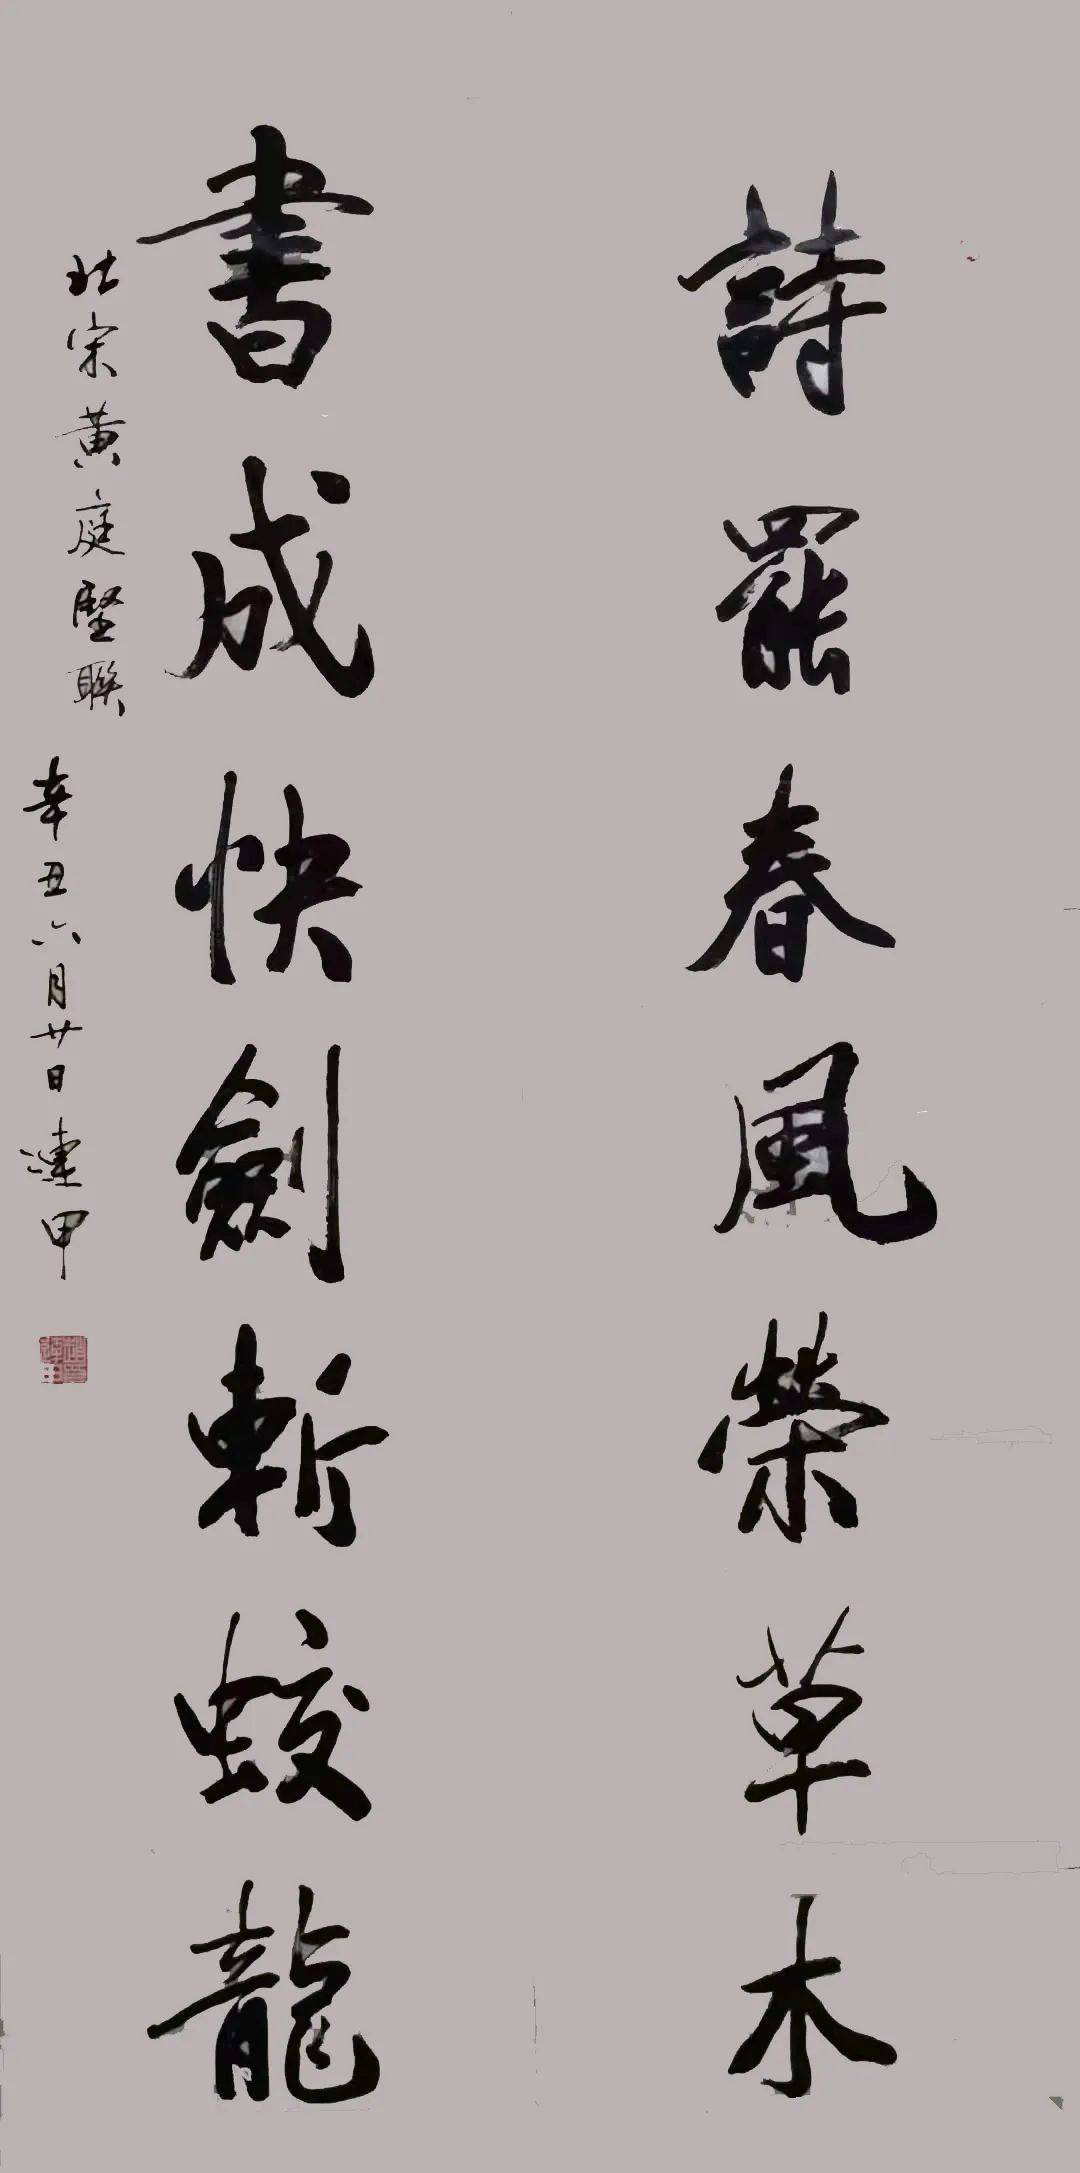 詩罷春風榮草木
書成快劍斬蛟龍
北宋黃庭堅聯
辛丑六月廿日蓮甲